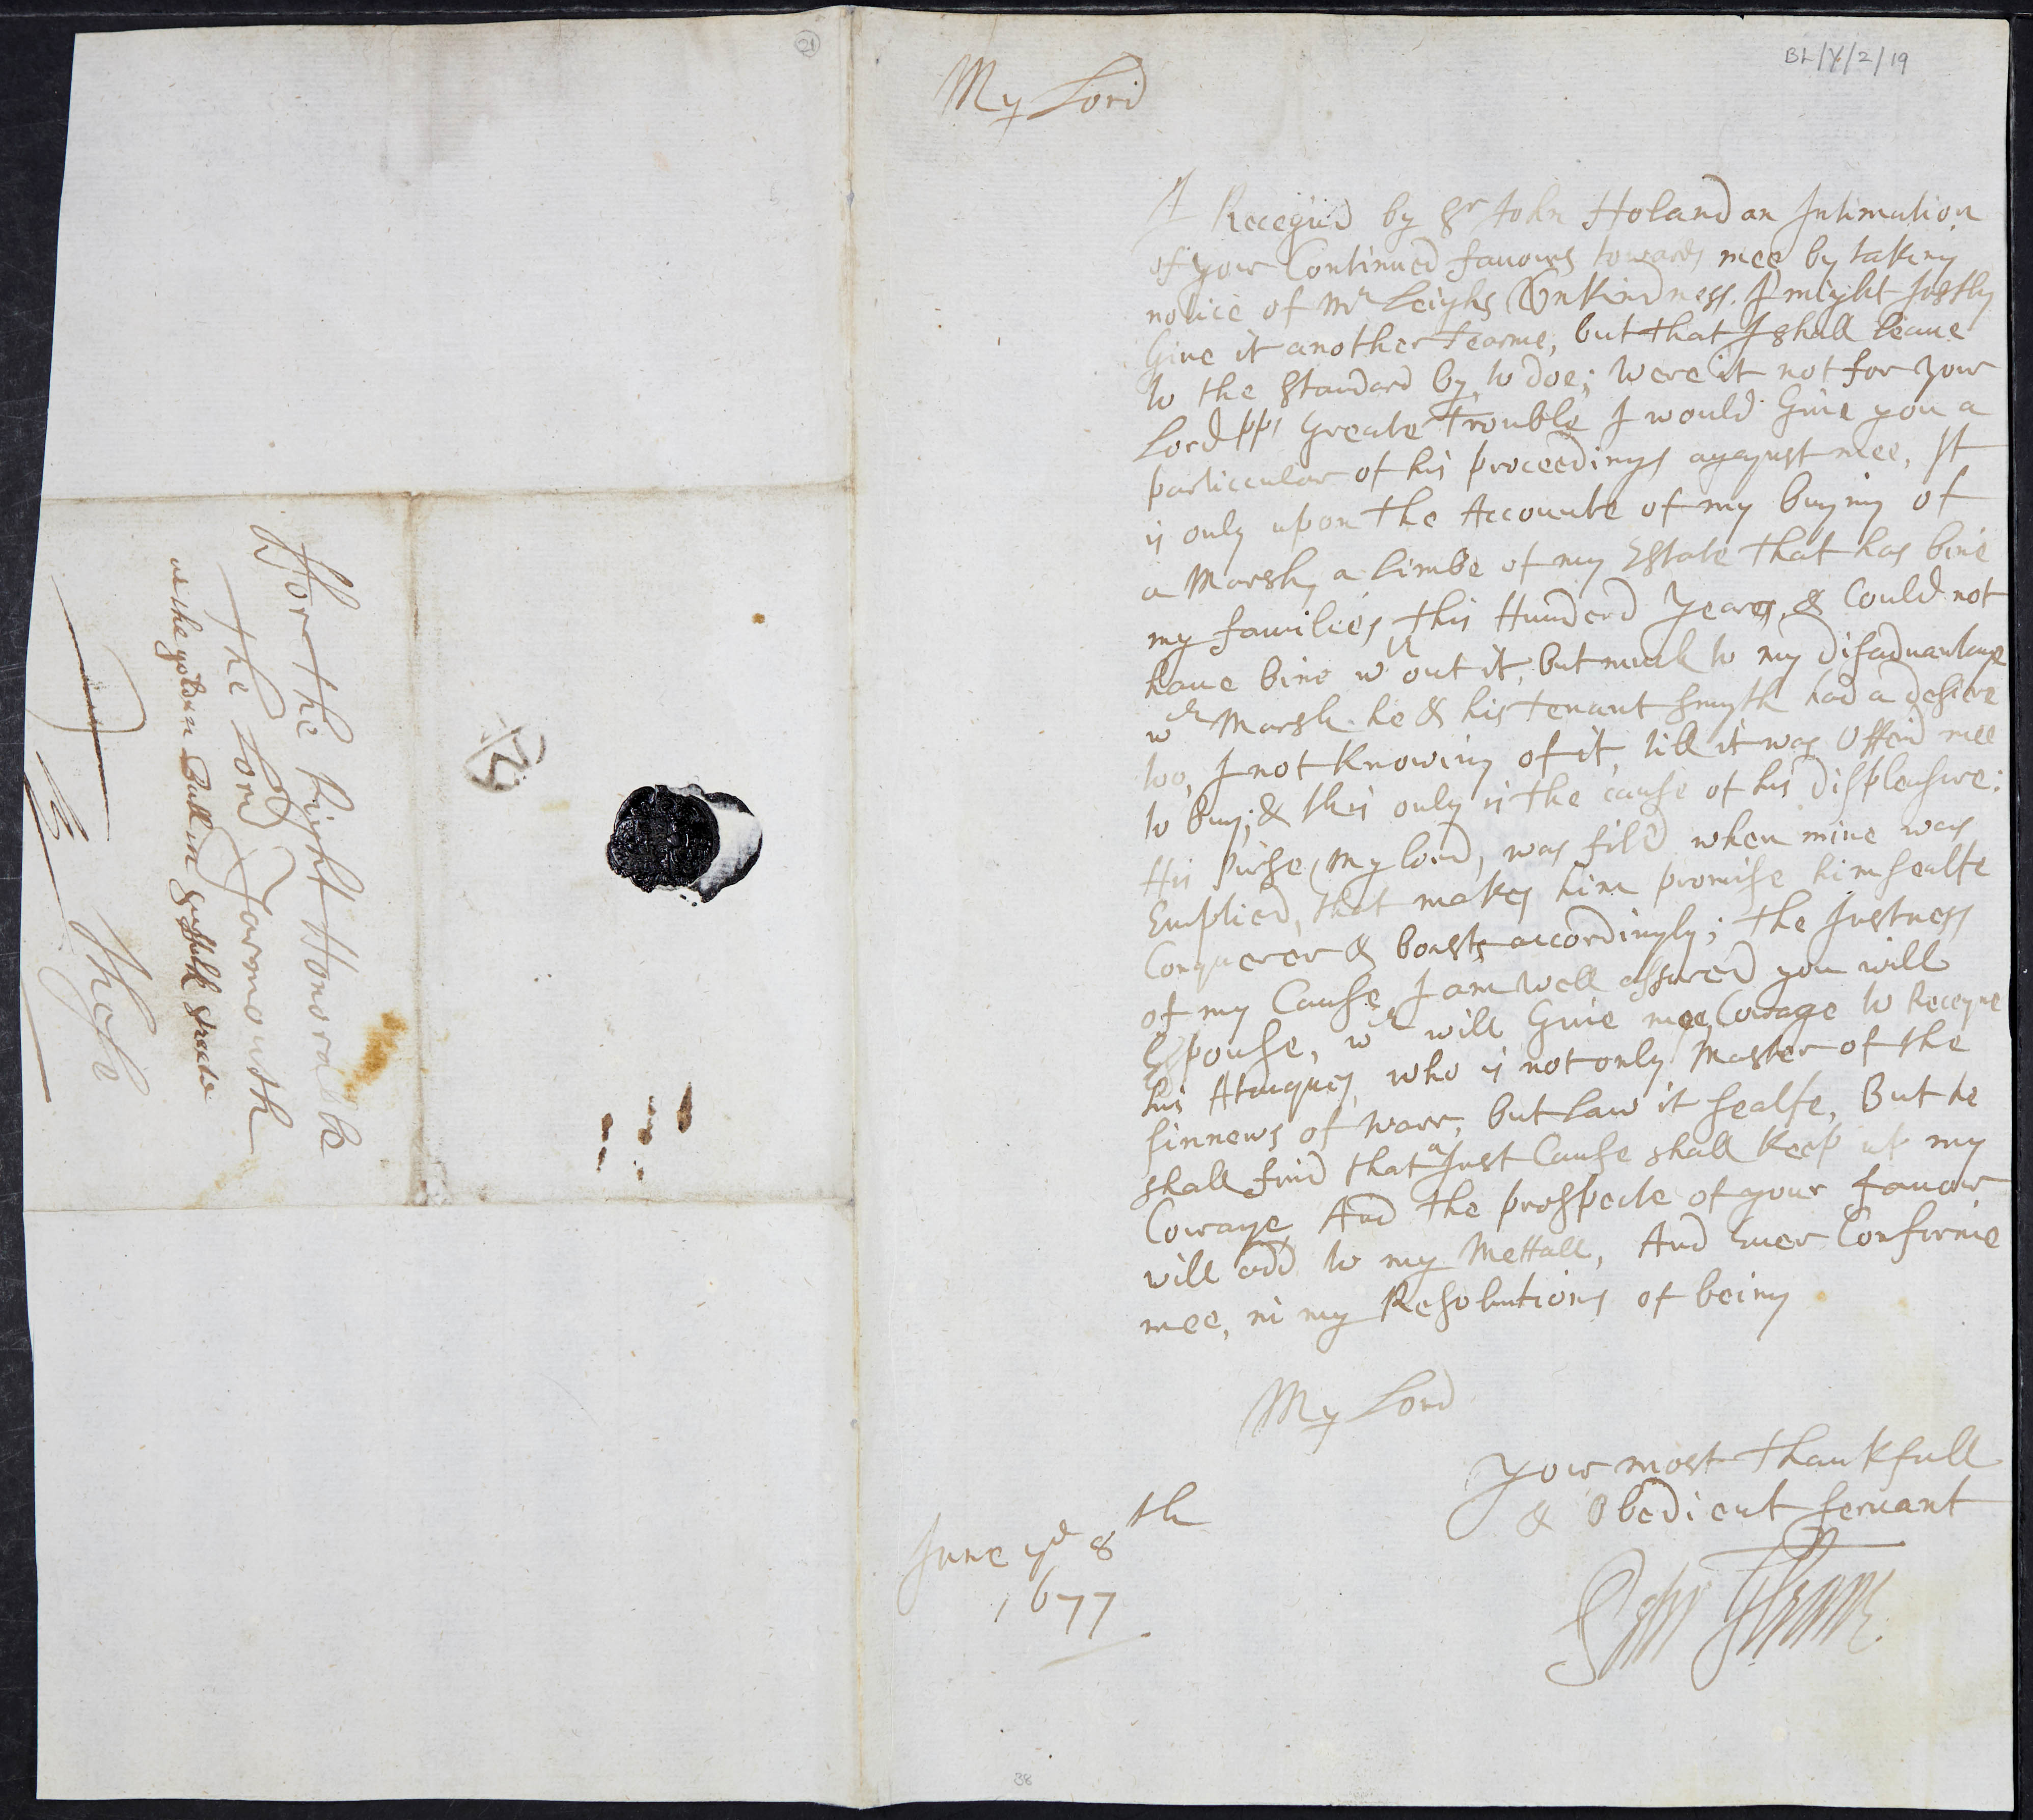 21
BL/Y/2/19
My Lord
I Receyu'd by Sr John Holand an Intimation
of your Continued fauours towards mee by taking
notice of Mr Leighs Unkindness. I might Justly
Giue it another tearme, but that I shall leaue
to the Standard by, to doe; were it not for your
Lordpps Greate Trouble I would Giue you a
particcular of his proceedings agaynst mee, It
is only upon the Accounte of my buying of
a Marsh, a limbe of my Estate that has bine
my families this Hunderd Yeares, & Could not
haue bine wth out it, but much to my disaduantage
wch Marsh he & his tenant Smyth had a desire
too, I not Knowing of it, till it was Offerd mee
to buy; & this only is the cause of his displeasure:
His Purse, My Lord, was fil'd when mine was
Emptied, that makes him promise himsealfe
Conquerer & boasts accordingly; the Justness
of my Cause, I am well assured you will
Espouse, wch will Giue mee Courage to Receyue
his Attaques, who is not only Master of the
sinnews of warr, but Law it sealfe, But he
shall find that a Just Cause shall Keep up my
Courage And the prospecte of your fauour
will add to my Mettall, And Euer Confirme
mee, in my Resolutions of being
My Lord
Your most thankfull
& Obedient seruant
June ye 8th
1677
38
ffor the Right Honorable
The Lord Yarmouth
at the golden Ball in Suffolk streete
These